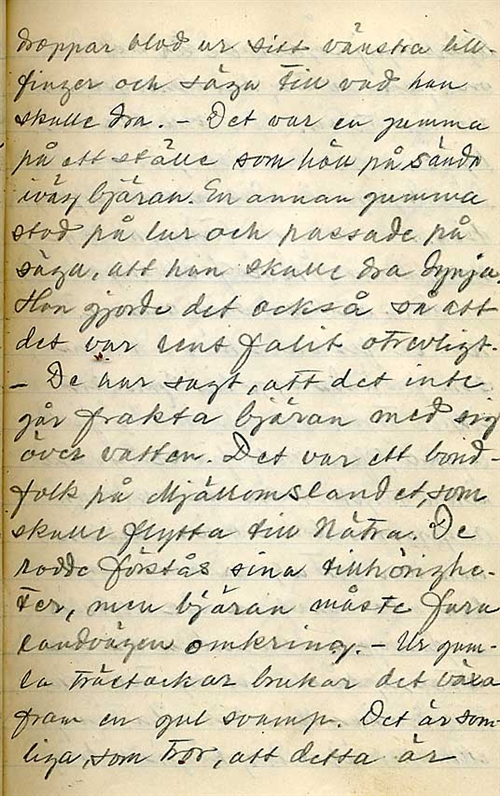 droppar blod ur sitt vänstra lill-
finger och säga till vad han
skulle dra. – Det var en gumma
på ett ställe som höll på sända
iväg bjäran. En annan gumma
stod på lur och passade på
säga, att hon skulle dra dynja.
Hon gjorde det också så att
det var rent falit otrevligt.
– De har sagt, att det inte
går frakta bjäran med sig
över vatten. Det var ett bond-
folk på Mjällomslandet, som
skulle flytta till Nätra. De
rodde förstås sina tillhörighe-
ter, men bjäran måste fara
landvägen omkring. – Ur gam-
la trästackar brukar det växa
fram en gul svamp. Det är som-
liga, som tror, att detta är